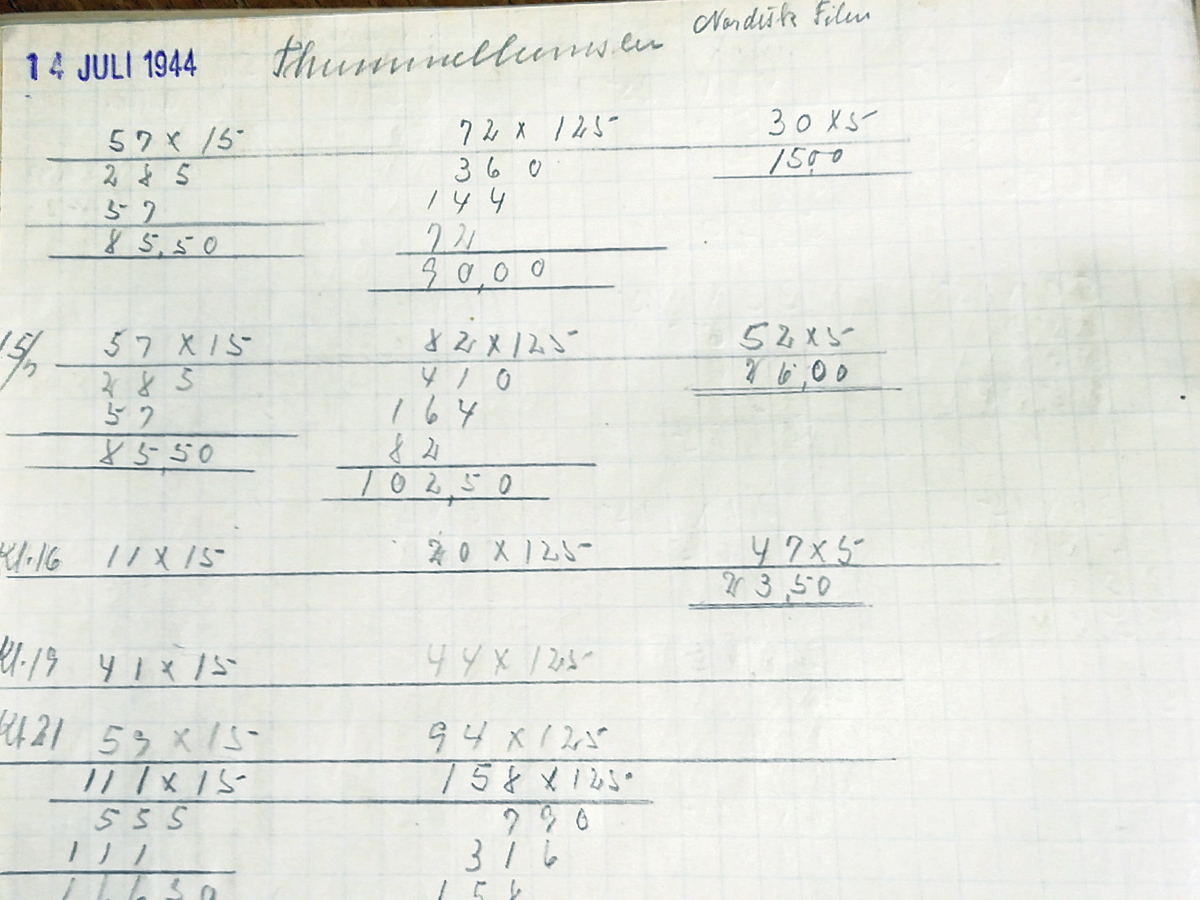 14 JULI 1944 Nordisk Film
57 x 15 72 x 125 30 x 5
285 360 15,00
57 144
85,50 72
90,00
15/7 57 x 15 82 x 125 52 x 5
285 410 26,00
57 164
85,50 82
102,50
Kl.16 11 x 15 20 x 125 47 x 5
23,50
Kl.19 41 x 15 44 x 125
Kl 21 59 x 15 94 x 125
111 x 15 158 x 125
555 790
111 316
158